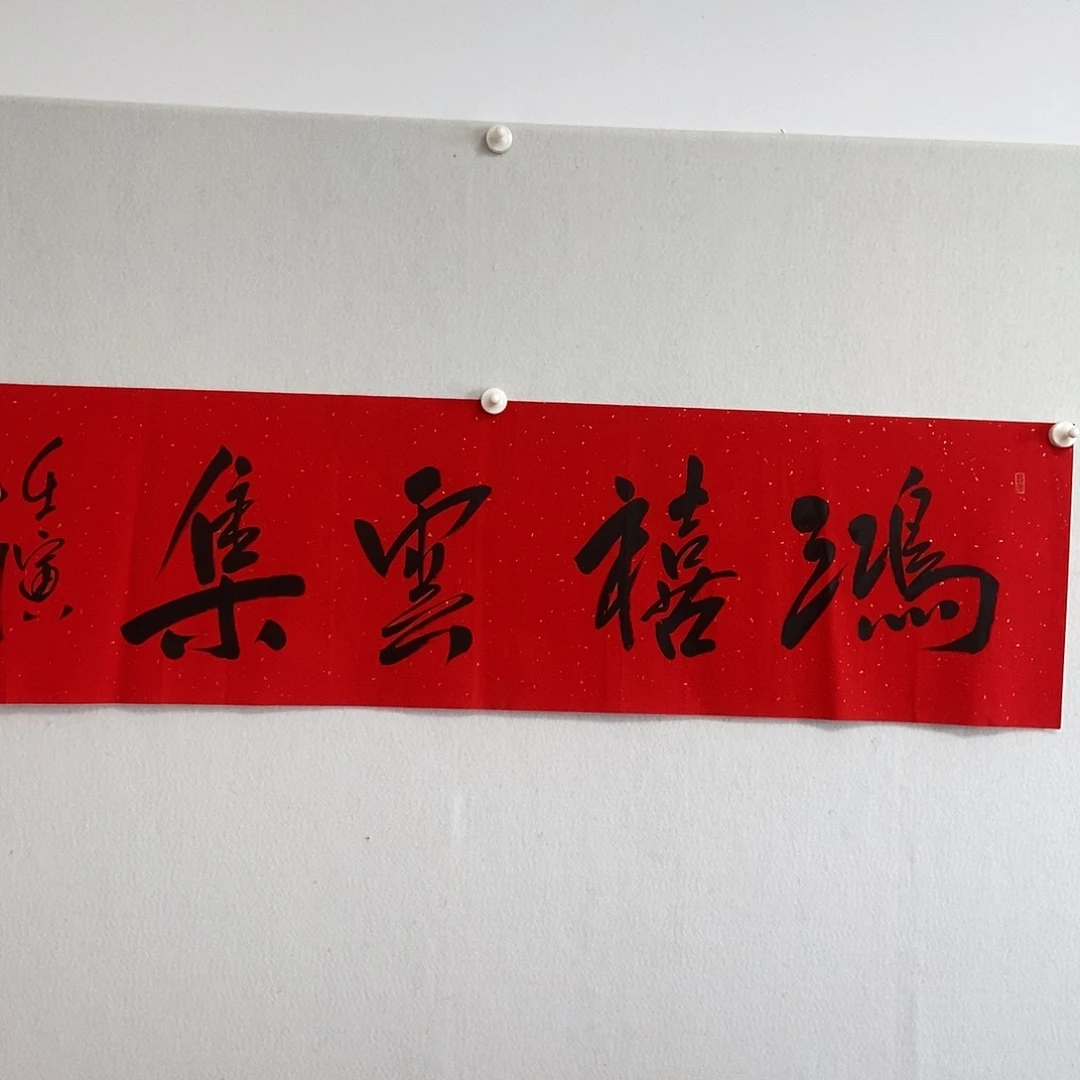 鴻禧雲集
壬寅